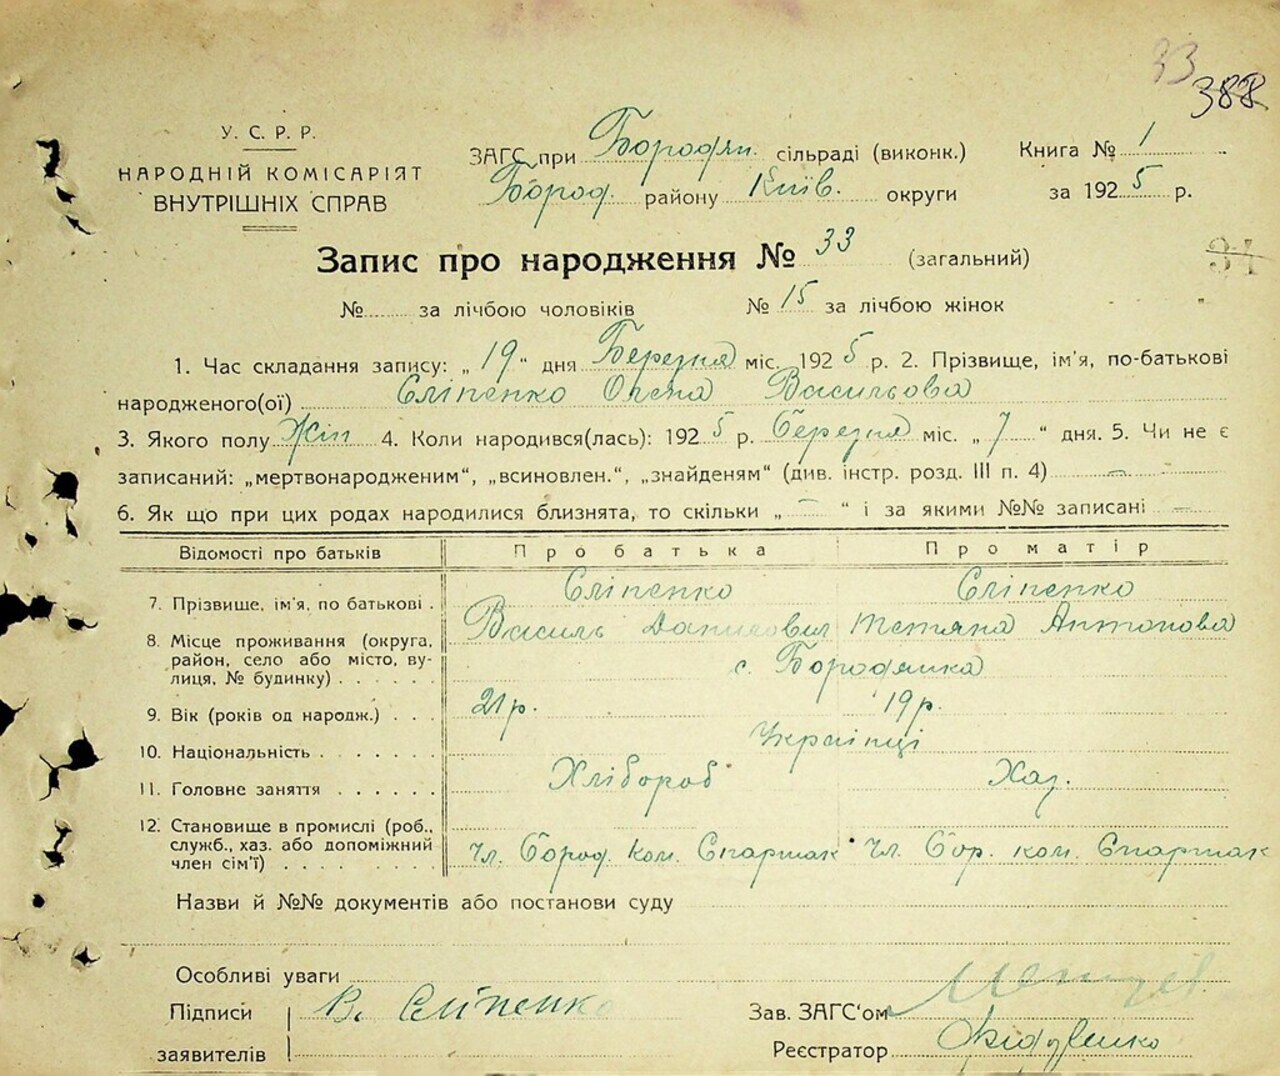 33
388
У. С. Р. Р.
НАРОДНІЙ КОМІСАРІЯТ
ВНУТРІШНІХ СПРАВ
ЗАГС при Бородян. сільраді (виконк.) Книга № 1
Бород. району Київ. округи за 1925 р.
Запис про народження № 33 (загальний)
31
№ за лічбою чоловіків № 15 за лічбою жінок
1. Час складання запису: „19“ дня Березня міс. 1925 р. 2. Прізвище, ім'я, по-батькові
народженого(ої) Сліпенко Олена Васильова
3. Якого полу Жін 4. Коли народився(лась): 1925 р. березня міс. „7“ дня. 5. Чи не є
записаний: „мертвонародженим“, „всиновлен.“, „знайденям“ (див. інстр. розд. III п. 4) —
6. Як що при цих родах народилися близнята, то скільки „—“ і за якими №№ записані —
Відомості про батьків Про батька Про матір
7. Прізвище, ім'я, по батькові . Сліпенко Сліпенко
Василь Данилович Тетяна Антонова
8. Місце проживання (округа,
район, село або місто, ву-
лиця, № будинку) . . . . . с. Бородянка
9. Вік (років од народж.) . . . 21 р. 19 р.
10. Національність . . . . . . Українці
11. Головне заняття . . . . . . Хлібороб Хаз.
12. Становище в промислі (роб.,
служб., хаз. або допоміжний
член сім'ї) . . . . . . . . Чл. Бород. ком. Спартак Чл. Бор. ком. Спартак
Назви й №№ документів або постанови суду
Особливі уваги
Підписи В. Сліпенко Зав. ЗАГС'ом
заявителів Реєстратор